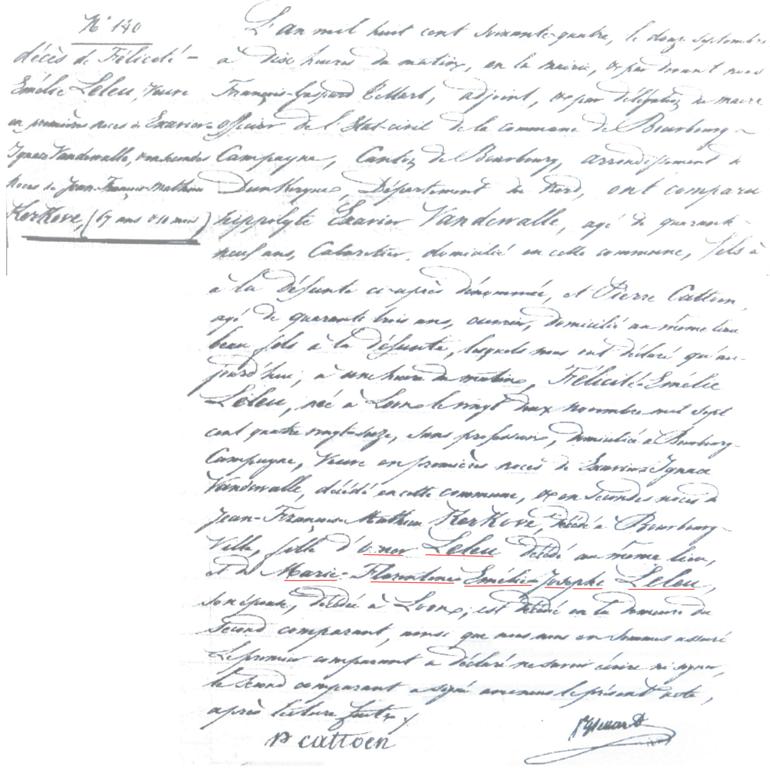 N° 140
décès de Félicité-
Emélie Leleu, Veuve
en premières noces de Exavier-
Ignace Vandewalle, & en secondes
Noces de Jean-François-Mathieu
KerKove, (67 ans & 10 mois)
L'an mil huit cent soixante-quatre, le douze septembre
à dix heures du matin, en la mairie, & par devant nous
François-Gaspard, adjoint, & par délégation du maire
officier de l'Etat-civil de la commune de Bourbourg-
Campagne, Canton de Bourbourg, arrondissement de
Dunkerque, Département du Nord, ont comparu
hippolyte Exavier Vandewalle, agé de quarante-
neuf ans, Cabaretier, domicilié en cette commune, fils à
à la Défunte ci-après dénommée, et Pierre Cattoen,
agé de quarante trois ans, ouvrier, domicilié au même lieu
beau fils à la défunte, lesquels nous ont déclaré qu'au-
jourd'hui, à une heure du matin, Félicité-Emélie
Leleu, née à Loon le vingt deux novembre mil sept
cent quatre vingt-seize, sans profession, domiciliée à Bourbourg-
Campagne, Veuve en premières noces de Exavier-Ignace
Vandewalle, décédé en cette commune, & en secondes noces de
Jean-François-Mathieu KerKove, décédé à Bourbourg-
Ville, fille d'Omer Leleu décédé au même lieu,
et de Marie-Florentine Emélie-Josephe Leleu,
son épouse, décédée à Loon, est décédée en la demeure du
second comparant, ainsi que nous nous en sommes assuré
Le premier comparant a déclaré ne savoir écrire ni signer,
le second comparant a signé avec nous le présent acte,
après lecture faite
P cattoen